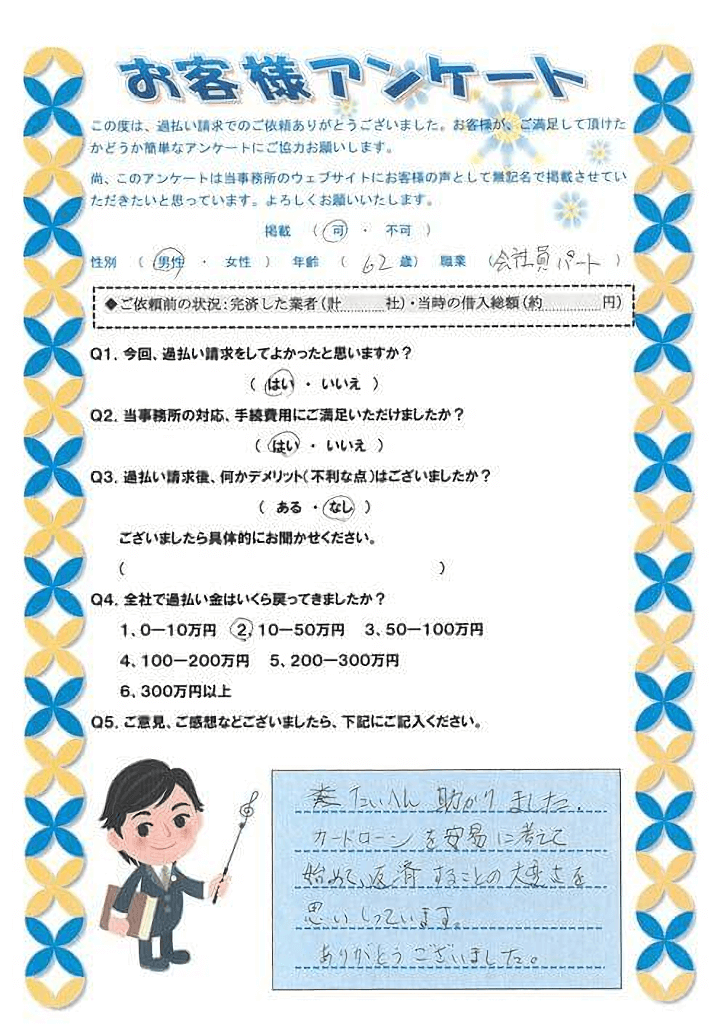 お客様アンケート
この度は、過払い請求でのご依頼ありがとうございました。お客様が、ご満足して頂けた
かどうか簡単なアンケートにご協力お願いします。
尚、このアンケートは当事務所のウェブサイトにお客様の声として無記名で掲載させてい
ただきたいと思っています。よろしくお願いいたします。
掲載 ( 可 ・ 不可 )
性別 ( 男性 ・ 女性 ) 年齢 ( 62 歳) 職業 (会社員パート )
◆ご依頼前の状況:完済した業者(計............社)・当時の借入総額(約................円)
Q1. 今回、過払い請求をしてよかったと思いますか?
( はい ・ いいえ )
Q2. 当事務所の対応、手続費用にご満足いただけましたか?
( はい ・ いいえ )
Q3. 過払い請求後、何かデメリット(不利な点)はございましたか?
( ある ・ なし )
ございましたら具体的にお聞かせください。
( )
Q4. 全社で過払い金はいくら戻ってきましたか?
1、0ー10万円 2、10ー50万円 3、50ー100万円
4、100ー200万円 5、200ー300万円
6、300万円以上
Q5. ご意見、ご感想などございましたら、下記にご記入ください。
たいへん 助かりました.
カードローンを安易に考えて
始めて、返済することの大変さを
思いしっています。
ありがとうございました。